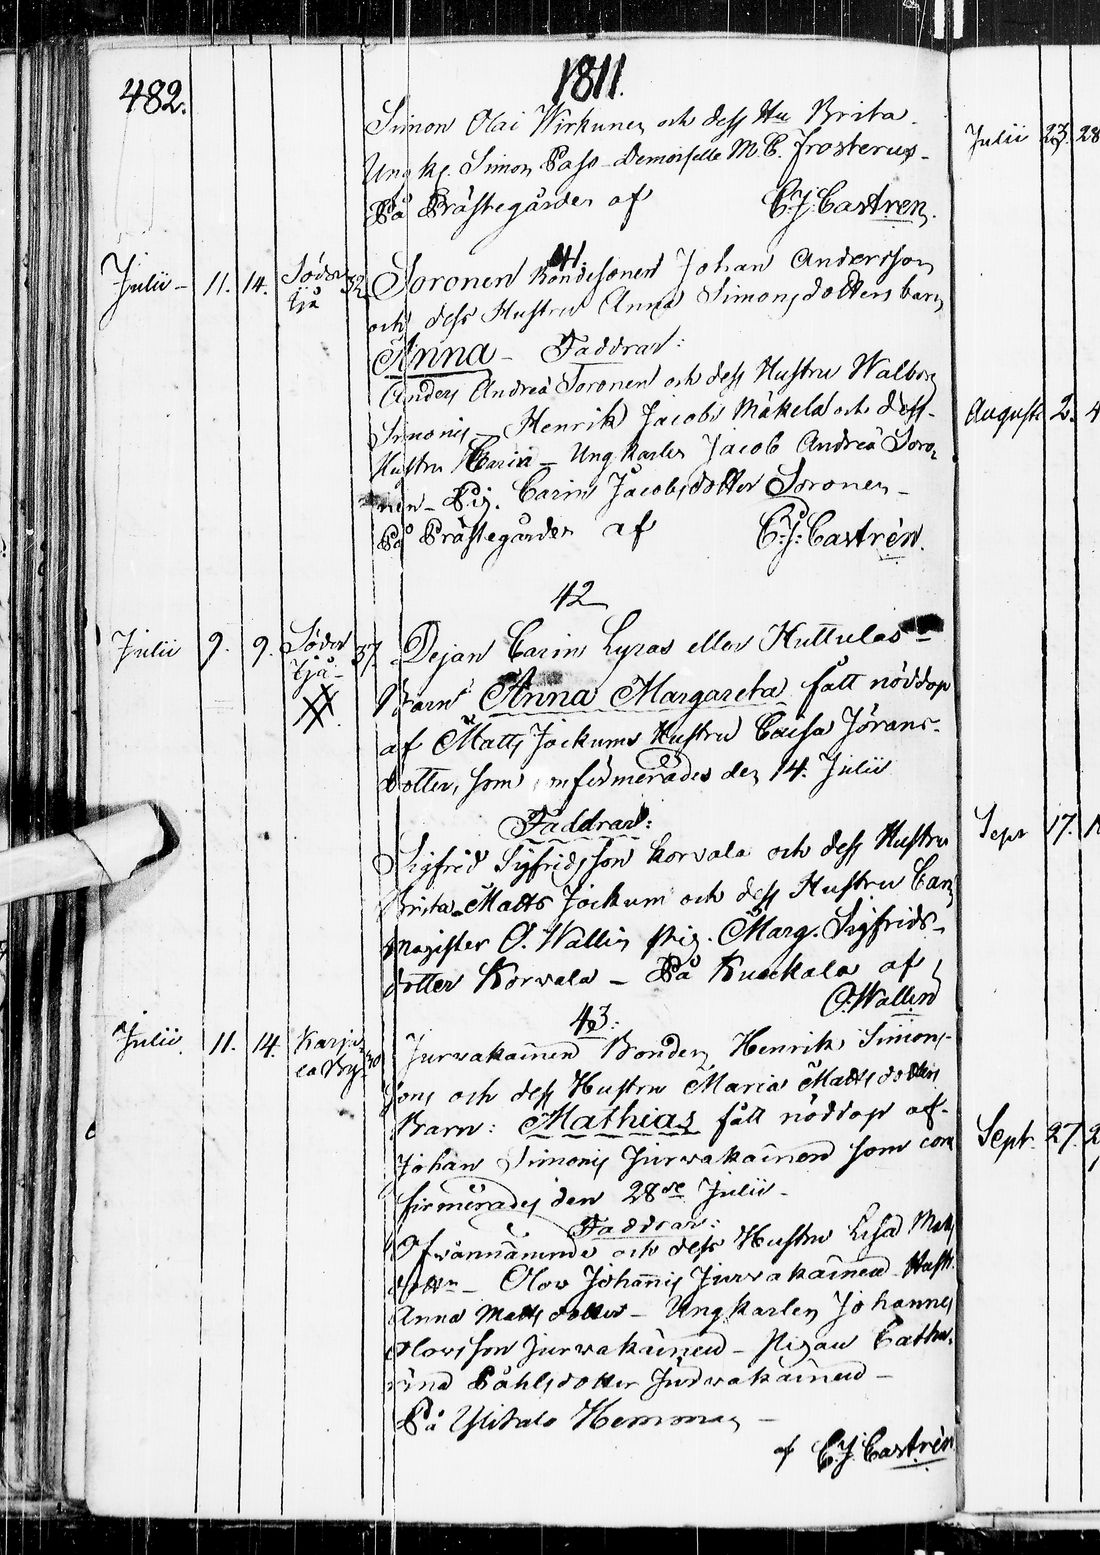 482.
1811.
Simon Olai Wirkunen och dess Hu Brita
Ungk. Simon Paso - Demoiselle M. C. Frosterus -
På Prästegården af C. J. Castrén.
41.
Julii - 11. 14. Söder tjä 32.
Soronen Bondesonen Johan Andersson
och dess Hustru Anna Simonsdotters barn
Anna - Faddrar:
Anders Andreæ Soronen och dess Hustru Walborg
Simonis - Henrik Jacobs Mäkelä och dess
Hustru Maria - Ungkarlen Jacob Andreæ Soro
nen - Pig. Carin Jacobsdotter Soronen -
På Prästegården af C. J. Castrén.
42
Julii 9. 9. Söder tjä - 37.
Pejan Carin Lyras eller Huttulas
Barn Anna Margareta fått nöddop
af Matts Jockums Hustru Caisa Jörans-
dotter, som confirmerades den 14. Julii
Faddrar:
Sigfrid Sigfridsson Korvala och dess Hustru
Brita - Matts Jockum och dess Hustru Carin
Magister O. Wallin pig. Marg. Sigfrids-
dotter Korvala - På Kuckala af
O. Wallin
43.
Julii 11. 14. Karja la By 30
Jurvakainen Bonden Henrik Simons-
sons och dess Hustru Maria Mattsdotters
Barn: Mathias fått nöddop af
Johan Simonis Jurvakainen som con
firmerades den 28de Julii -
Faddrar:
Ofvannämnde och dess Hustru Lisa Matts
dotter - Olov Johannis Jurvakainen Hustr.
Anna Mattsdotter - Ungkarlen Johannes
Olovsson Jurvakainen - Pigan Catha-
rina Påhlsdotter Jurvakainen -
På Ylitalo Hemman -
af C. J. Castrén
Julii 23. 28
Augusti 2. 4
Sept 17. 1
Sept. 27. 2